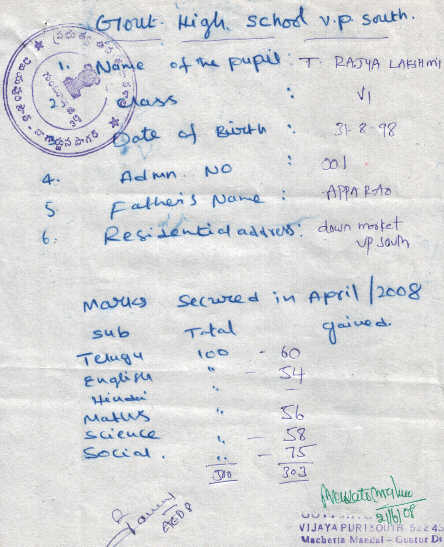 Govt. High School V.P. South.
1. Name of the pupil : T. RAJYA LAKSHMI
2. Class : VI
Date of Birth : 31-8-98
4. Admn. NO : 001
5 Father's Name : APPA RAO
6. Residential address: down market
V.P South
Marks Secured in April/2008
Sub Total gained.
Telugu 100 - 60
English " - 54
Hindi -
Maths " 56
Science " - 58
Social. " - 75
500 303
21/6/08
VIJAYAPURI SOUTH 522 43
Macherla Mandal - Guntur Di